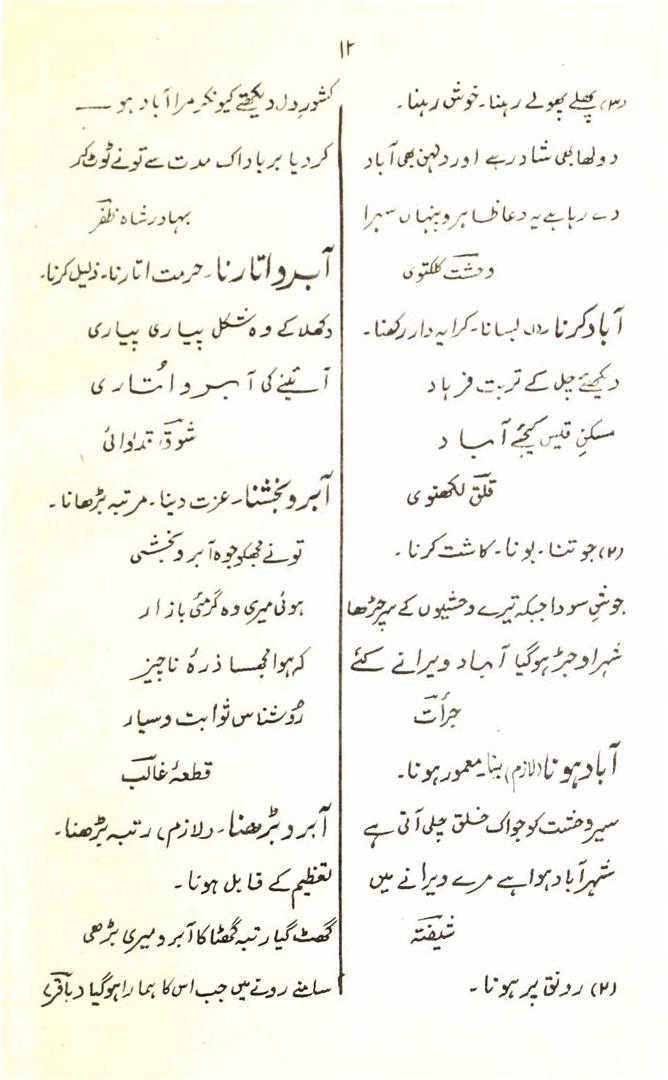 ۱۲
(۳) پھلے پھولے رہنا۔ خوش رہنا۔
دولھا بھی شاد رہے اور دلہن بھی آباد
دے رہا ہے یہ دعا ظاہر و پنہاں سہرا
وحشت کلکتوی
آباد کرنا (۱) بسانا۔ کرایہ دار رکھنا۔
دیکھئے چل کے تربت فرہاد
مسکنِ قیس کیجئے آباد
قلق لکھنوی
(۲) جوتنا۔ بونا۔ کاشت کرنا۔
جوشِ سودا جبکہ تیرے وحشیوں کے سر چڑھا
شہر اوجڑ ہو گیا آباد ویرانے کئے
جرأت
آباد ہونا (لازم) بسنا۔ معمور ہونا۔
سیر وحشت کو جو اک خلق چلی آتی ہے
شہر آباد ہوا ہے مرے ویرانے میں
شیفتہ
(۲) رونق پر ہونا۔
کشورِ دل دیکھئے کیونکر مرا آباد ہو ——
کر دیا برباد اک مدت سے تو نے لوٹ کر
بہادر شاہ ظفر
آبرو اتارنا۔ حرمت اتارنا۔ ذلیل کرنا۔
دکھلا کے وہ شکل پیاری پیاری
آئینے کی آبرو اُتاری
شوق قدوائی
آبرو بخشنا۔ عزت دینا۔ مرتبہ بڑھانا۔
تو نے مجھکو جو آبرو بخشی
ہوئی میری وہ گرمئی بازار
کہ ہوا مجھسا ذرۂ ناچیز
رُوشناس ثوابت و سیار
قطعۂ غالب
آبرو بڑھنا۔ (لازم) رتبہ بڑھنا۔
تعظیم کے قابل ہونا۔
گھٹ گیا رتبہ گھٹا کا آبرو میری بڑھی
سامنے رونے میں جب اس کا ہمارا ہو گیا (باقر)